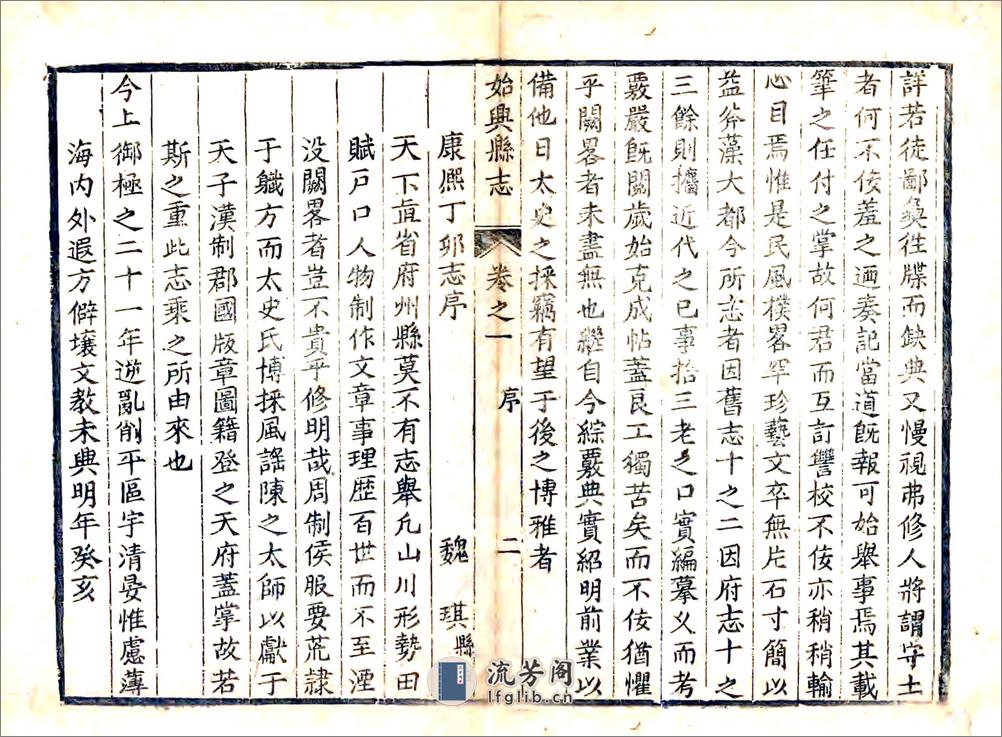 詳若徒鄙彝徃牒而缺典又慢視弗修人將謂守土
者何不佞羞之迺奏記當道旣報可始舉事焉其載
筆之任付之掌故何君而互訂讐校不佞亦稍稍輸
心目焉惟是民風樸畧罕珍藝文卒無片石寸簡以
益斧藻大都今所志者因舊志十之二因府志十之
三餘則攟近代之已事拾三老之口實編摹义而考
覈嚴旣閱歲始克成帖蓋良工獨苦矣而不佞猶懼
乎闕畧者未盡無也繼自今綜覈典實紹明前業以
備他日太史之採竊有望于後之博雅者
始興縣志
卷之一
序
二
康熈丁夘志序
魏 琪縣
天下直省府州縣莫不有志舉凡山川形勢田
賦戸口人物制作文章事理歷百世而不至湮
没闕畧者豈不貴乎修明哉周制侯服要荒隷
于軄方而太史氏博採風謡陳之太師以獻于
天子漢制郡國版章圖籍登之天府蓋掌故若
斯之重此志乘之所由來也
今上御極之二十一年逆亂削平區宇清晏惟慮薄
海内外遐方僻壤文教未興明年癸亥
流芳阁
lfglib.cn